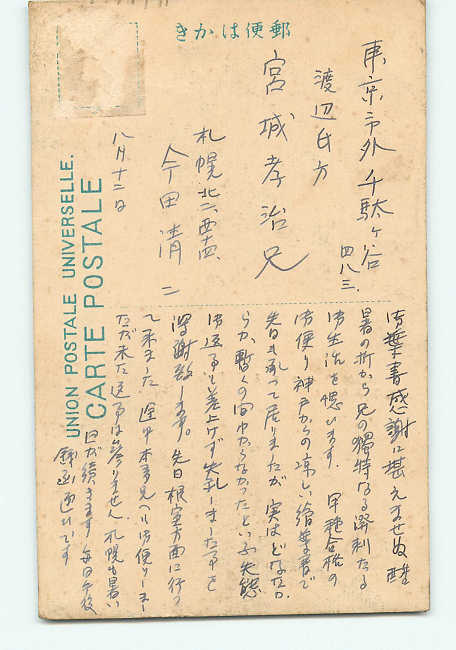 きかは便郵
UNION POSTALE UNIVERSELLE.
CARTE POSTALE
東京市外千駄ヶ谷
四八三
渡辺氏方
宮城孝治兄
札幌北六西
今田清二
八月十二日
御葉書感謝に堪えませぬ 酷
暑の折から兄の獨特なる溌剌たる
御生活を想います。甲種合格の
御便り神戸からの涼しい繪葉書で
先日も承って居りましたが 実はどなたか
らか暫くの間わからなかったといふ失態
御返事も差上げず失礼しました事を
深謝致します。先日根室方面に行つ
て来ました 途中本多兄へ御便りしまし
ただ未だ返事は参りません 札幌も暑い
日が続きます 毎日午後
通ひです